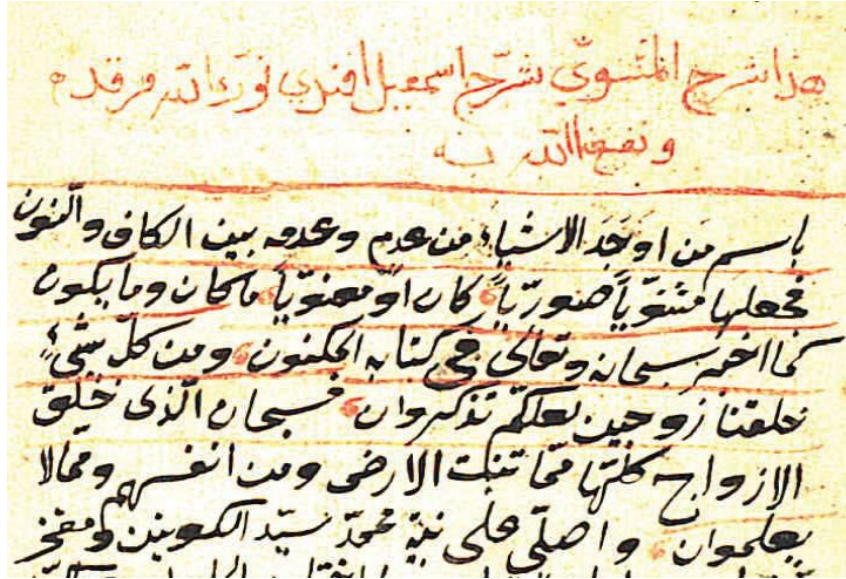 هذا شرح المثنويّ شرّح اسمعيل افندي نوّر الله مرقده
ونفعنا الله به
باسم مَن اوجَدَ الاشياء من عدم وعدمه بين الكاف والنّون
فجعلها مثنوّياً صنورّياً كان او معنوّياً ما كان وما يكون
كما اخبر سبحانه وتعالى في كتابه المكنون ومن كلّ شيءٍ
خلقنا زوجين لعلكّم تذكروان فسبحان الّذى خلق
الازواج كلّها ممّا تنبت الارض ومن انفسهم وممّالا
يعلموان واصلّى على نبيّه محمّد سيّد الكونين ومفخر